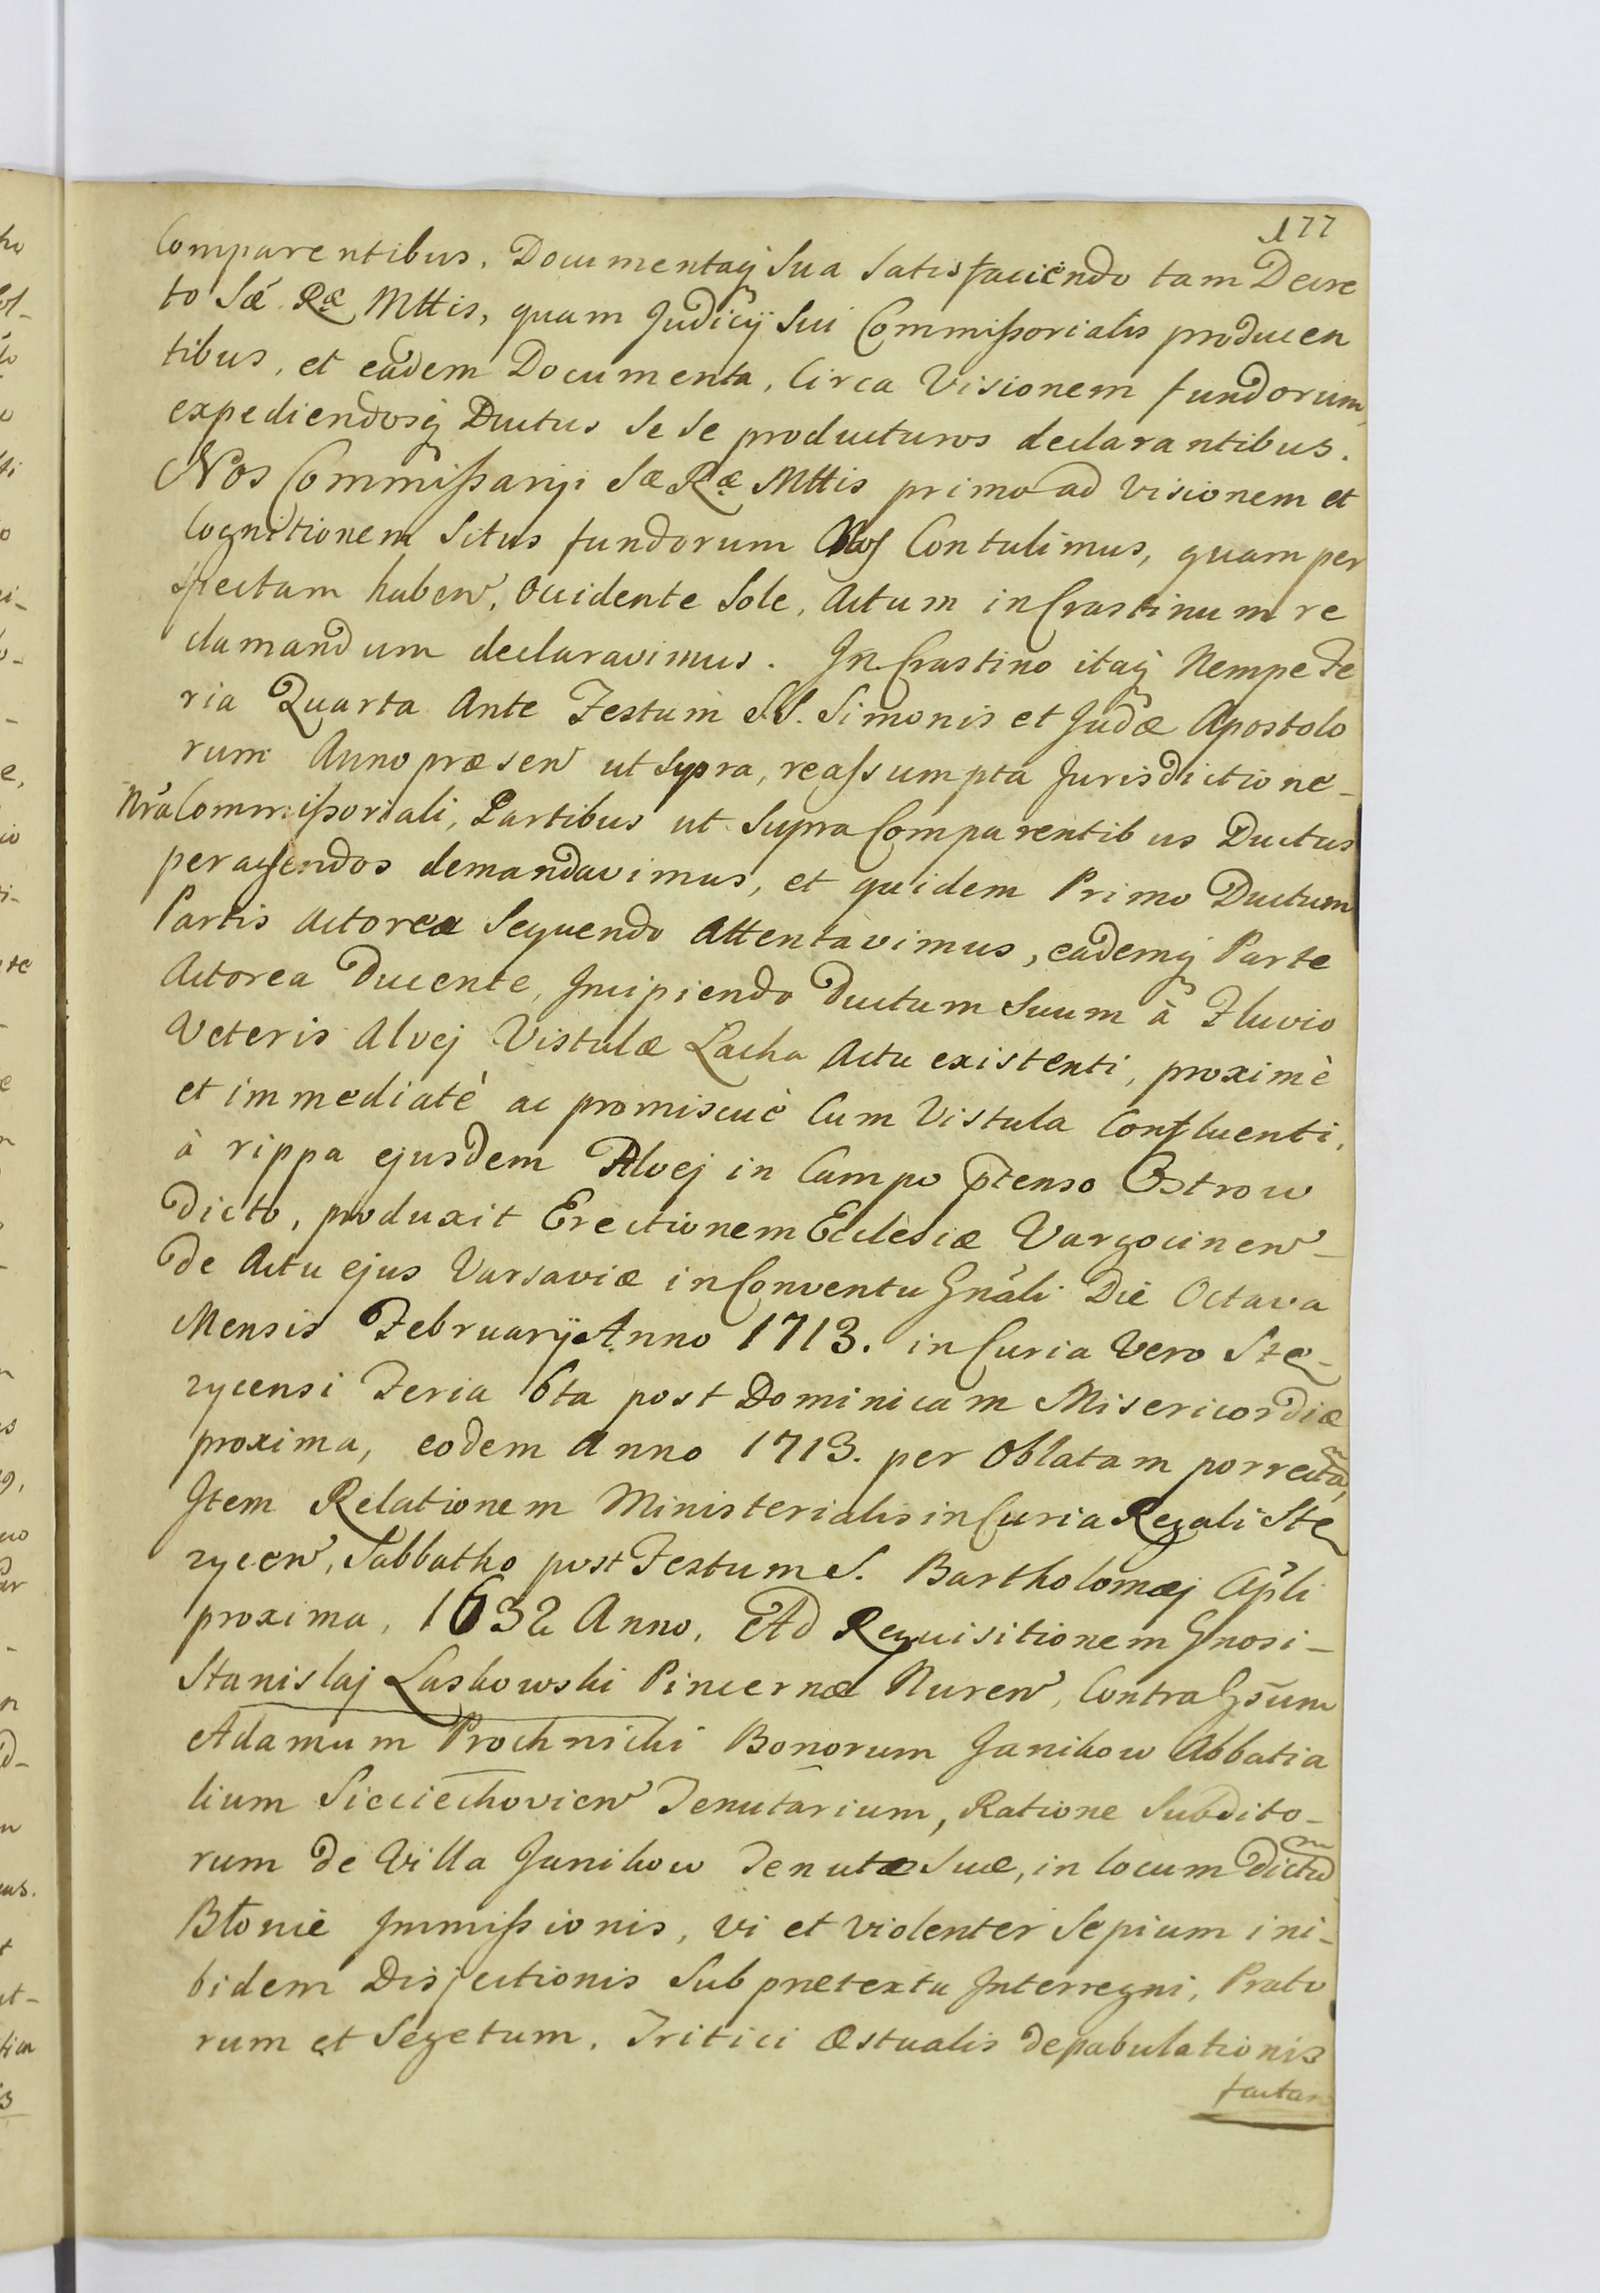 177
Comparentibus, Documentaq́ Sua Satisfaciendo tam Decre
to Sæ Ræ Mttis, quam Judicij Sui Commißorialis producen
tibus, et eadem Documenta, Circa Visionem fundorum,
expediendosq́ Ductus Se Se producturos declarantibus.
Nos Commißarij Sæ Ræ Mttis primo ad Visionem et
Cognitionem Situs fundorum Nos Contulimus, quam per
spectam haben, Occidente Sole, Actum in Crastinum re
clamandum declaravimus. In Crastino itaq́ Nempe Fe
ria Quarta Ante Festum S.S. Simonis et Judæ Apostolo
rum Anno præsen ut Supra, reassumpta Jurisdictione
Nrá Commißoriali, Partibus ut Supra Comparentibus Ductus
peragendos demandavimus, et quidem Primo Ductum
Partis Actoreæ Sequendo Attentavimus, eademq́ Parte
Actorea Ducente, Incipiendo Ductum Suum à Fluvio
Veteris Alvej Vistulæ Lacha Actu existenti, proximè
et immediatè ac promiscuè Cum Vistula Confluenti,
à rippa ejusdem Alvej in Campo ptenso Ostrow
Dicto, produxit Erectionem Ecclesiæ Vargocinen
de Actu ejus Varsaviæ in Conventu Gnáli Die Octava
Mensis Februarij Anno 1713. in Curia Vero Stę-
zycensi Feria 6ta post Dominicam Misericordiæ
proxima, eodem Anno 1713. per Oblatam porrectam,
Item Relationem Ministerialis in Curia Regali Stę
zycen, Sabbatho post Festum S. Bartholomæj Apli
proxima, 1632 Anno, Ad Requisitionem Gnosi-
Stanislaj Laskowski Pincernæ Nuren, Contra Gsum
Adamum Prochnicki Bonorum Janikow Abbatia
lium Sieciechovien Tenutarium, Ratione Subdito-
rum de Villa Janikow Tenutæ Suæ, in locum dictum
Błonie Immißionis, vi et violenter Sepium ini-
bidem Disjectionis Sub prætextu Interregni, Prato
rum et Segetum, Tritici Æstualis depabulationis
factam